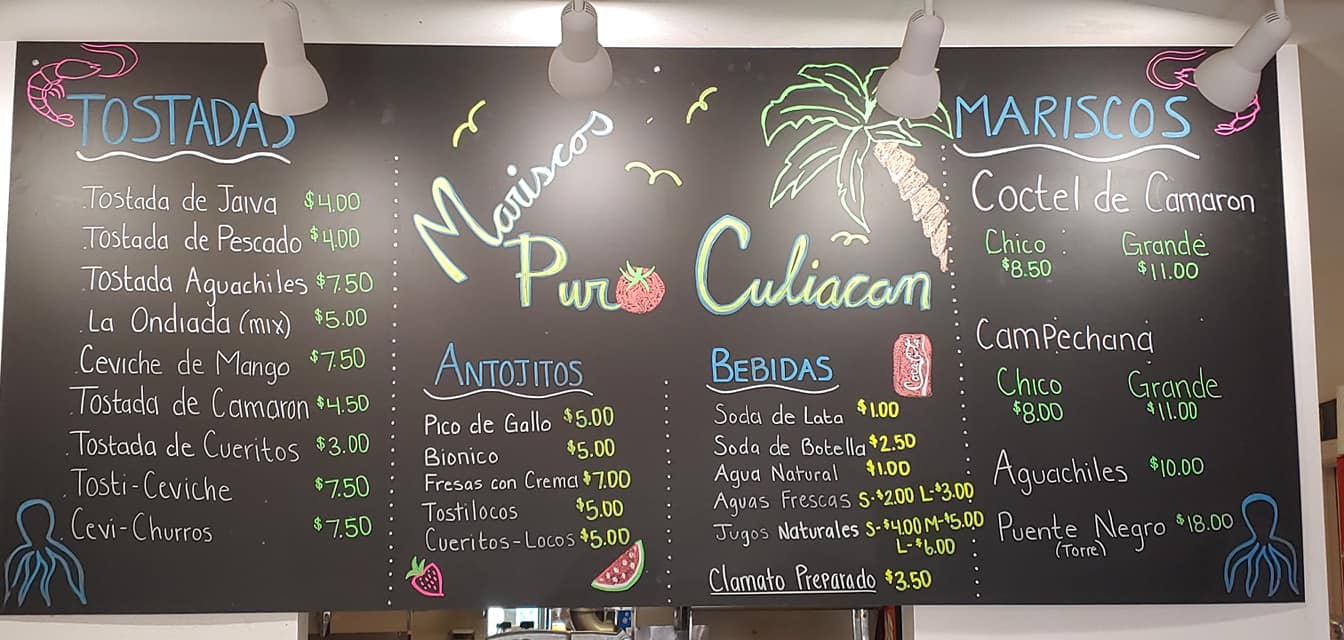 TOSTADAS
Tostada de Jaiva $4.00
Tostada de Pescado $4.00
Tostada Aguachiles $7.50
La Ondiada (mix) $5.00
Ceviche de Mango $7.50
Tostada de Camaron $4.50
Tostada de Cueritos $3.00
Tosti-Ceviche $7.50
Cevi-Churros $7.50
Mariscos
Puro Culiacan
ANTOJITOS
Pico de Gallo $5.00
Bionico $5.00
Fresas con Crema $7.00
Tostilocos $5.00
Cueritos-Locos $5.00
BEBIDAS
Coca-Cola
Soda de Lata $1.00
Soda de Botella $2.50
Agua Natural $1.00
Aguas Frescas S-$2.00 L-$3.00
Jugos Naturales S-$4.00 M-$5.00
L-$6.00
Clamato Preparado $3.50
MARISCOS
Coctel de Camaron
Chico Grande
$8.50 $11.00
Campechana
Chico Grande
$8.00 $11.00
Aguachiles $10.00
Puente Negro $18.00
(Torre)